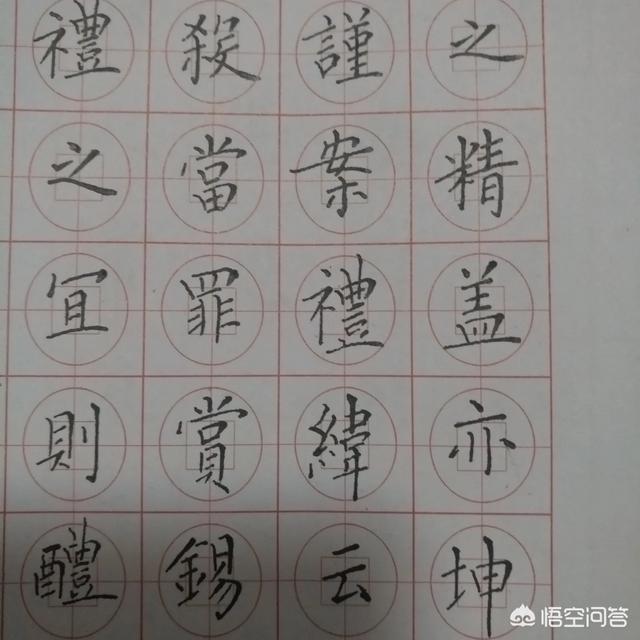 之精盖亦坤
謹案禮緯云
殺當罪賞錫
禮之冝則醴
悟空问答